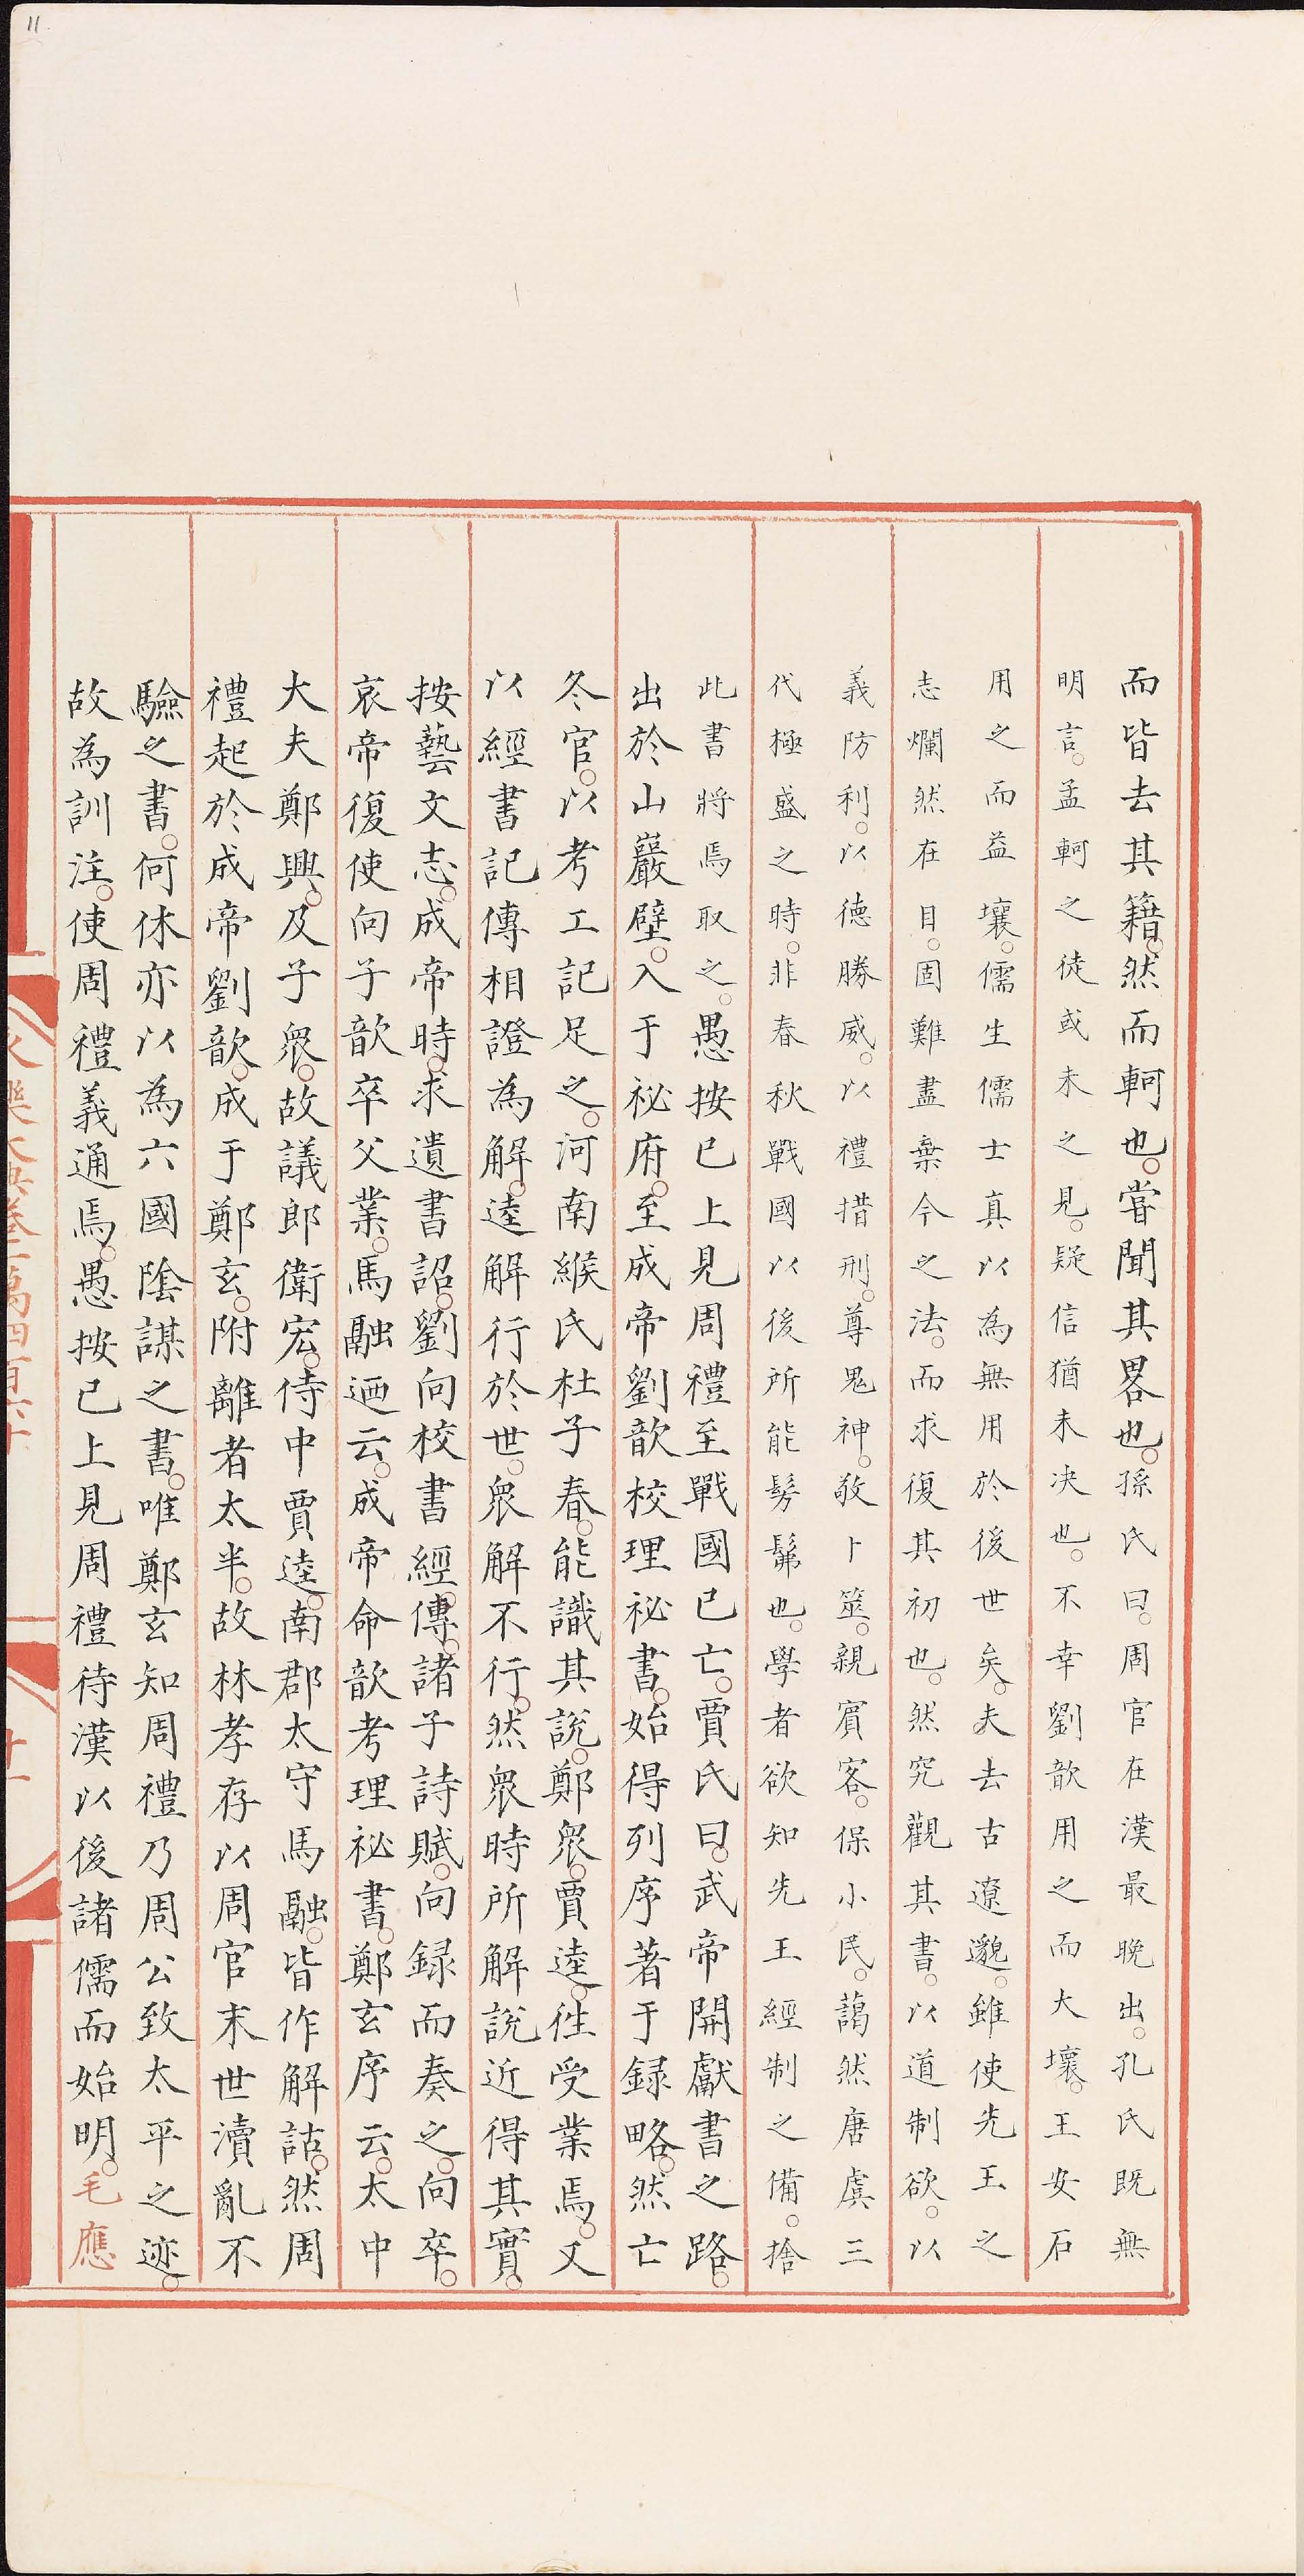 11
而皆去其籍。然而軻也。嘗聞其畧也。孫氏曰。周官在漢最晚出。孔氏既無
明言。孟軻之徒或未之見。疑信猶未决也。不幸劉歆用之而大壞。王安石
用之而益壞。儒生儒士真以為無用於後世矣。夫去古遼邈。雖使先王之
志爛然在目。固難盡棄今之法。而求復其初也。然究觀其書。以道制欲。以
義防利。以德勝威。以禮措刑。尊鬼神。敬卜筮。親賓客。保小民。藹然唐虞三
代極盛之時。非春秋戰國以後所能髣髴也。學者欲知先王經制之備。捨
此書將焉取之。愚按已上見周禮至戰國已亡。賈氏曰。武帝開獻書之路。
出於山巖壁。入于祕府。至成帝劉歆校理祕書。始得列序著于録略。然亡
冬官。以考工記足之。河南緱氏杜子春。能識其說。鄭衆。賈逵。徃受業焉。又
以經書記傳相證為解。逵解行於世。衆解不行。然衆時所解說近得其實。
按藝文志。成帝時。求遺書詔。劉向校書經。傳。諸子詩賦。向録而奏之。向卒。
哀帝復使向子歆卒父業。馬融迺云。成帝命歆考理祕書。鄭玄序云。太中
大夫鄭興。及子衆。故議郎衛宏。侍中賈逵。南郡太守馬融。皆作解詁。然周
禮起於成帝劉歆。成于鄭玄。附離者太半。故林孝存以周官末世瀆亂不
驗之書。何休亦以為六國陰謀之書。唯鄭玄知周禮乃周公致太平之迹。
故為訓注。使周禮義通焉。愚按已上見周禮待漢以後諸儒而始明。毛應